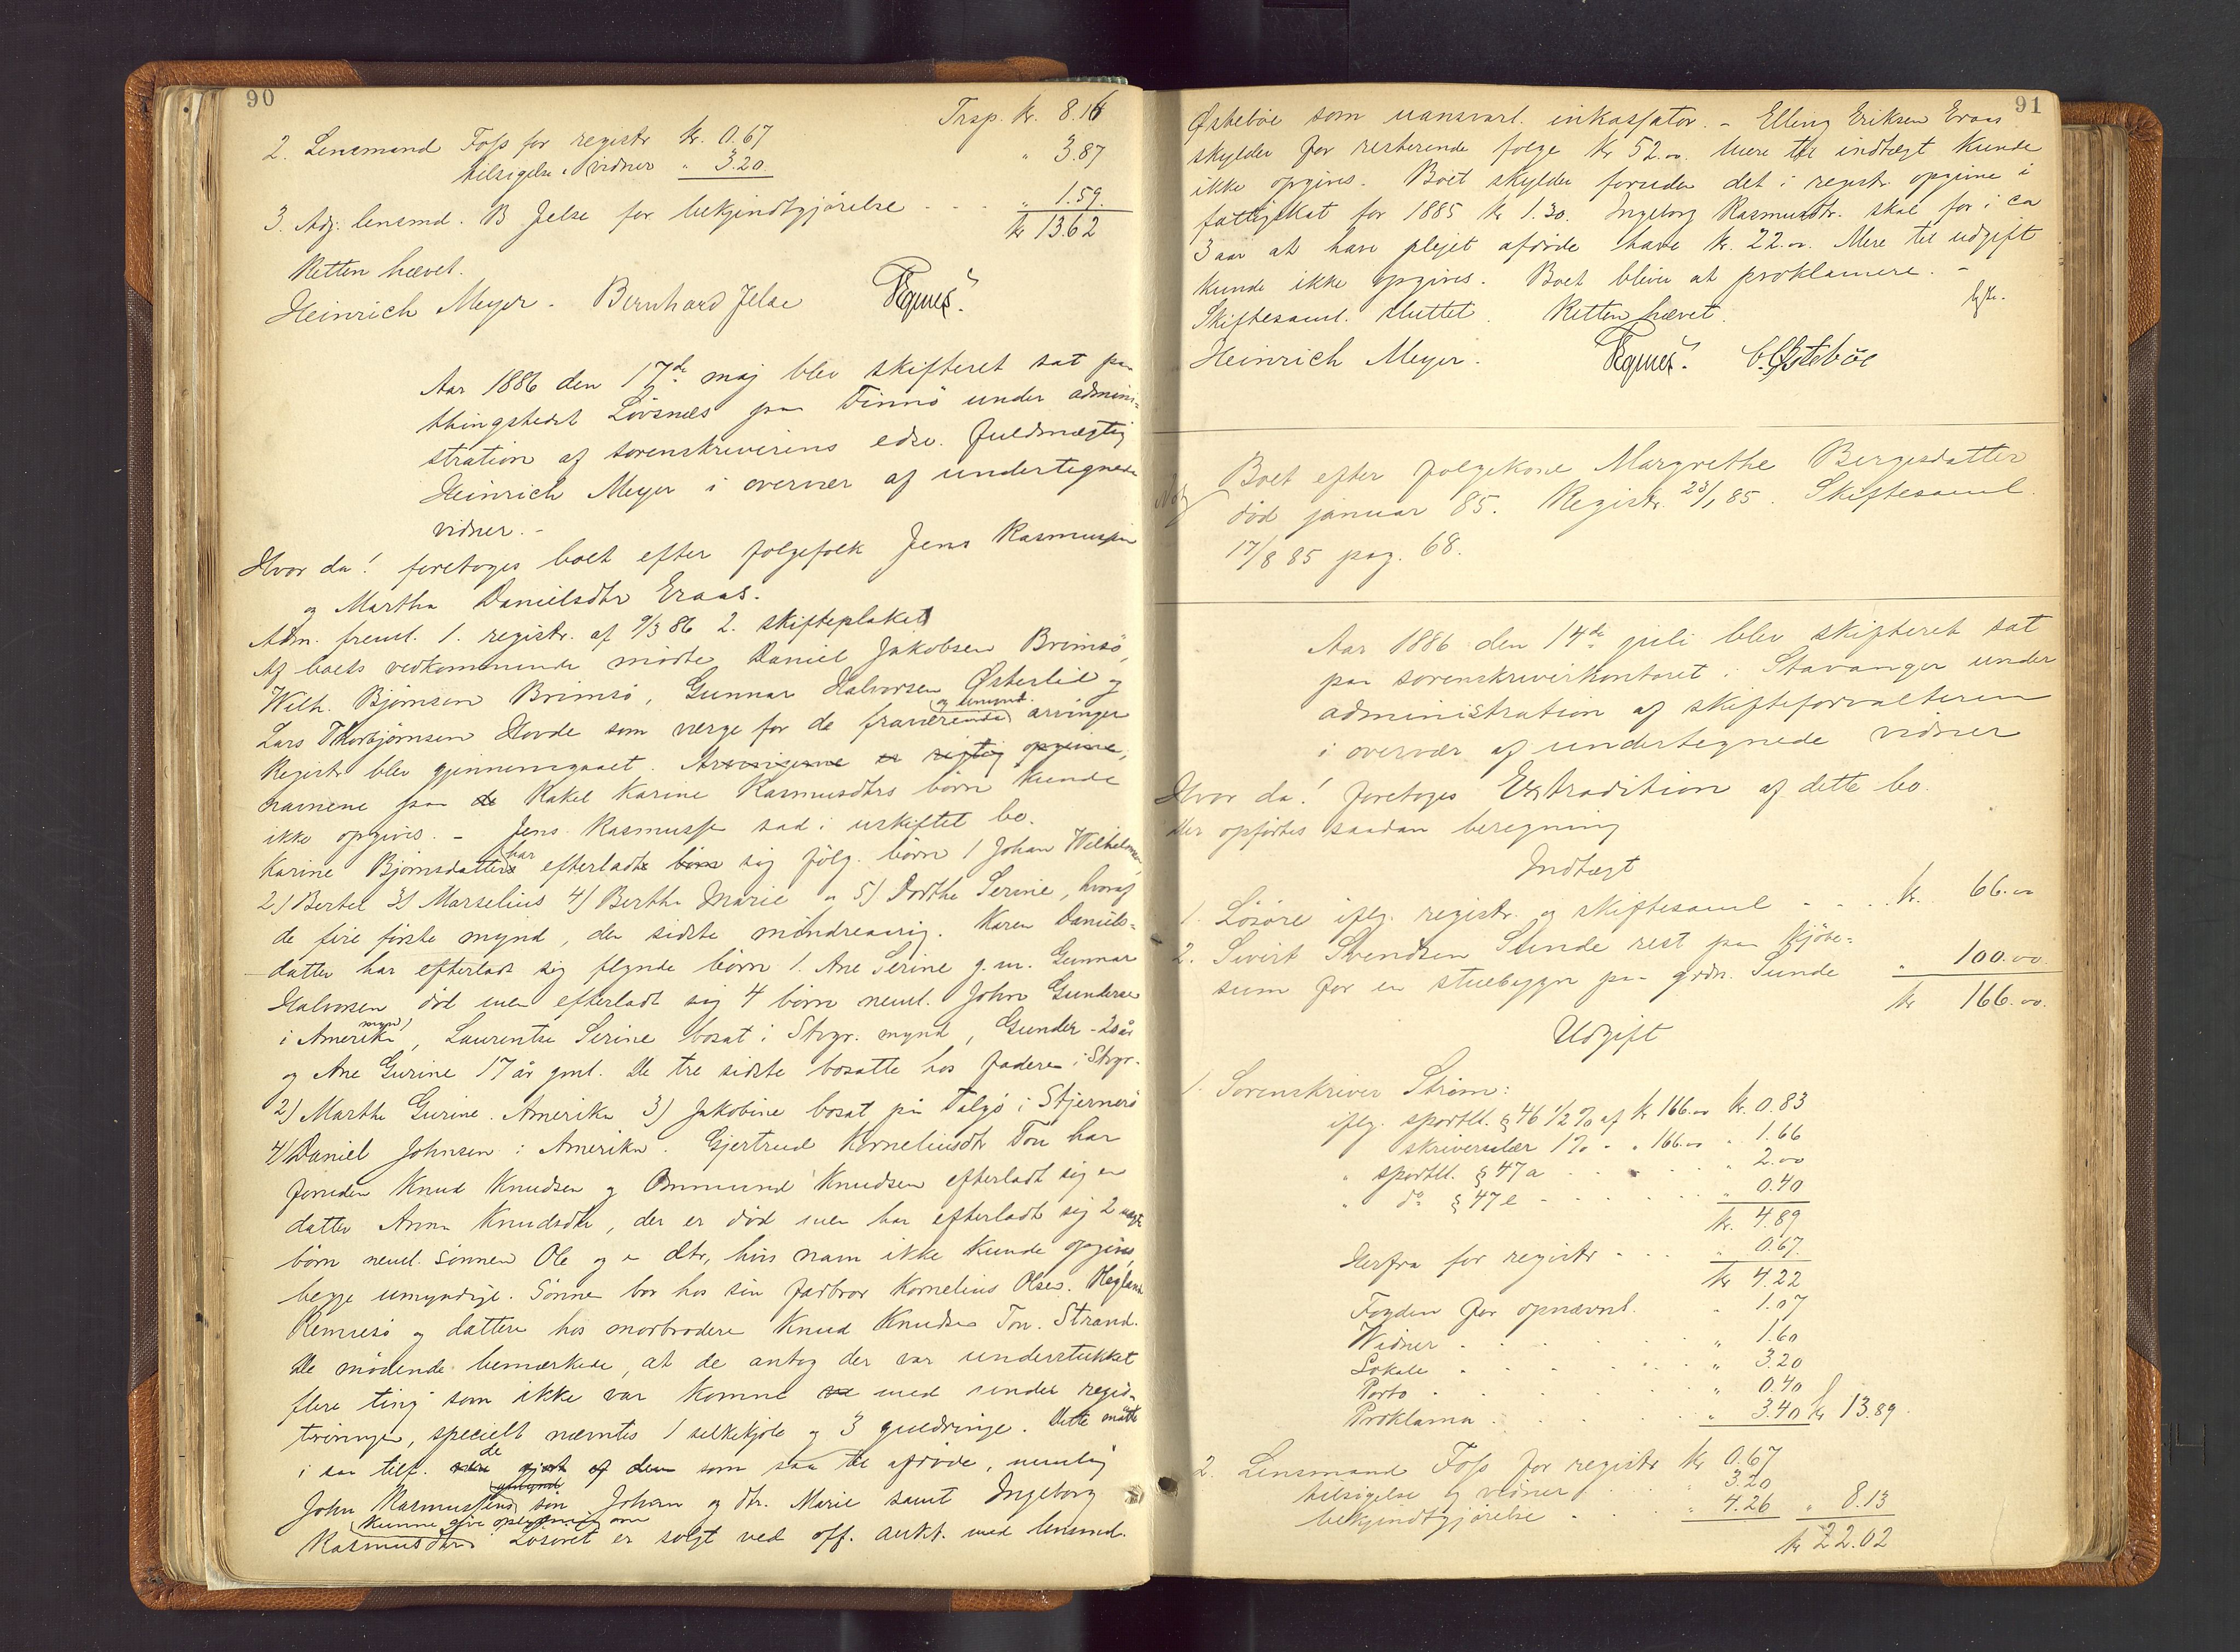 90
Trsp. kr. 8.16
2. Lensmand Foss for registr kr. 0.67
tilsigelse & vidner " 3.20 " 3.87
3. Adj. lensmd. B Jelse for bekjendtgjörelse - - - " 1.59.
kr 13.62
Retten hævet.
Heinrich Meyer - Bernhard Jelse
Aar 1886 den 17de maj blev skifteret sat paa
thingstedet Lövsnæs paa Finnö under admini-
stration af sorenskriverens edsv. fuldmægtig
Heinrich Meyer i overvær af undertegnede
vidner. -
Hvor da! foretoges boet efter folgefolk Jens Rasmussen
og Martha Danielsdtr Eraas.
Adm. freml. 1. registr. af 9/3 86 2. skifteplakat
Af boets vedkommende mödte Daniel Jakobsen Brimsö,
Wilh. Bjørnsen Brimsö, Gunnar Halvorsen Østerlid og
Lars Thorbjørnsen Hovde som værge for de fraværende og umynd. arvinger
Registr blev gjennemgaaet. Arvingerne er rigtig opgivne,
navnene paa de Rakel Karine Rasmusdtrs børn kunde
ikke opgives. - Jens Rasmussen sad i uskiftet bo.
Karine Bjørnsdatter har efterladt börn sig fölg. börn 1 Johan Wilhelmsen,
2) Bertel 3) Marselius 4) Berthe Marie og 5) Dorthe Serine, hvoraf
de fire förste mynd, den sidste mindreaarig. Karen Daniels-
datter har efterladt sig flgnde börn 1. Ane Serine g. m. Gunnar
Halvorsen död men efterladt sig 4 börn neml. John Gundersen
i Amerika mynd, Laurentse Serine bosat i Stvgr. mynd, Gunder - 20 år
og Ane Gurine 17 år gml. De tre sidste bosatte hos faderen i Stvgr.
2) Marthe Gurine. Amerika 3) Jakobine bosat på Talgö i Stjernerö
4) Daniel Johnsen i Amerika. Gjertrud Kornelius dtr Tou har
foruden Knud Knudsen og Ommund Knudsen efterladt sig en
datter Anna Knudsdtr, der er död men har efterladt sig 2
börn neml. sönnen Ole og en dtr, hvis navn ikke kunde opgives,
begge umyndige. Sönnen bor hos sin farbror Kornelius Olsen Hegland
Rennesö og datteren hos morbroderen Knud Knudsen Tou. Strand.
De mödende bemærkede, at de antog der var understukket
flere ting som ikke var komne med under regis-
treringen, specielt nævntes 1 silkekjole og 3 guldringe. Dette måtte
i saa tilf. være gjort af dem som saa til afdöde, nemlig
John Rasmussens sön Johan og dtr. Marie samt Ingeborg
Rasmusdtr kunne give oplysning om Lösöret er solgt ved off. aukt. med lensmd.
91
Østeböe som uansvarl. inkassator. - Elling Eriksen Eraas
skylder for resterende folge kr 52.00. Mere til indtægt kunde
ikke opgives. Boet skylder foruden det i registr. opgivne i
fattigskat for 1885 kr 1.30. Ingeborg Rasmusdtr. skal for i ca
3 aar at have plejet afdöde have kr. 22.00. Mere til udgift
kunde ikke opgives. Boet bliver at proklamere. -
Skiftesaml. sluttet. Retten hævet.
Heinrich Meyer. Østeböe
Boet efter folgekone Margrethe Bergesdatter
död januar 85. Registr. 23/1 85. Skiftesaml.
17/8 85 pag. 68.
Aar 1886 den 14de juli blev skifteret sat
paa sorenskriverkontoret i Stavanger under
administration af skifteforvalteren
i overvær af undertegnede vidner
Hvor da! foretoges Extradition af dette bo.
Der opförtes saadan beregning
Indtægt
1. Lösöre iflg. registr. og skiftesaml - - - kr. 66.00
2. Sivert Svendsen Sunde rest paa kjöbe-
sum for en stuebygn paa grdn. Sunde " 100.00
kr 166.00.
Udgift
1. Sorenskriver Ström:
iflg. sportll. § 46 1/2 % af kr 166.00 kr. 0.83
" skriversalær 1% - " 166.00 " 1.66
" sportll. § 47 a - - - " 2.00
" do § 47 e - - - - " 0.40
kr. 4.89
Herfra for registr - - - " 0.67
kr 4.22
Fogden for opnævnl. " 1.07
Vidner - - - " 1.60
Lokale - - - " 3.20
Porto - - - " 0.40
Proklama - - - " 3.40 kr 13.89.
2. Lensmand Foss for registr kr 0.67
tilsigelse og vidner " 3.20
bekjendtgjörelse - - " 4.26 " 8.13
kr 22.02